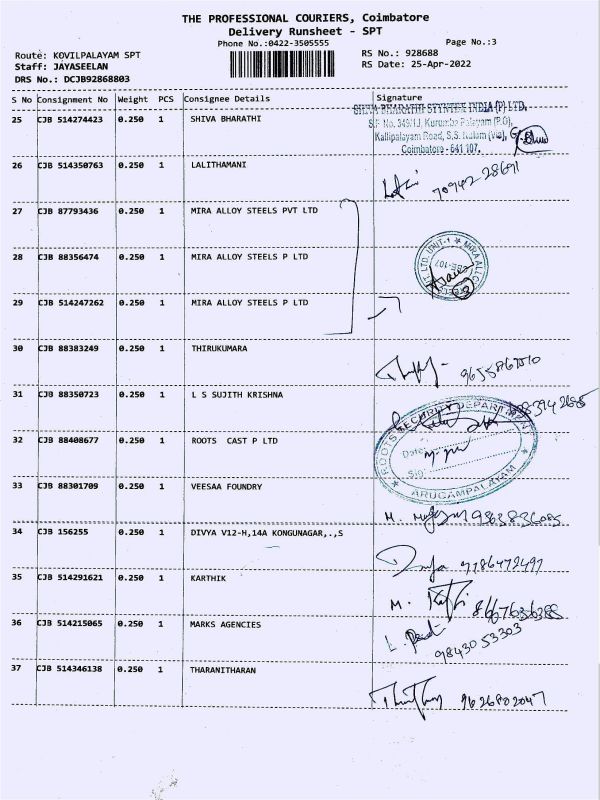 THE PROFESSIONAL COURIERS, Coimbatore
Delivery Runsheet - SPT
Phone No.:0422-3505555
Page No.:3
Route: KOVILPALAYAM SPT
RS No.: 928688
Staff: JAYASEELAN
RS Date: 25-Apr-2022
DRS No.: DCJB92868803
S No Consignment No Weight PCS Consignee Details Signature
25 CJB 514274423 0.250 1 SHIVA BHARATHI
SHIVA BHARATHI SYNTHEE INDIA (P) LTD,
S.F No. 349/1J, Kurumba Palayam (P.O),
Kallipalayam Road, S.S. Kulam (Via),
Coimbatore - 641 107.
26 CJB 514350763 0.250 1 LALITHAMANI
70942 28691
27 CJB 87793436 0.250 1 MIRA ALLOY STEELS PVT LTD
28 CJB 88356474 0.250 1 MIRA ALLOY STEELS P LTD
29 CJB 514247262 0.250 1 MIRA ALLOY STEELS P LTD
30 CJB 88383249 0.250 1 THIRUKUMARA
31 CJB 88350723 0.250 1 L S SUJITH KRISHNA
32 CJB 88408677 0.250 1 ROOTS CAST P LTD
ROOTS SECURITY DEPARTMENT
Date:
Sig:
ARUGAMPALAYAM
33 CJB 88301709 0.250 1 VEESAA FOUNDRY
34 CJB 156255 0.250 1 DIVYA V12-H,14A KONGUNAGAR,.,S
Divya
35 CJB 514291621 0.250 1 KARTHIK
8667636388
36 CJB 514215065 0.250 1 MARKS AGENCIES
9843053303
37 CJB 514346138 0.250 1 THARANITHARAN
9626802047